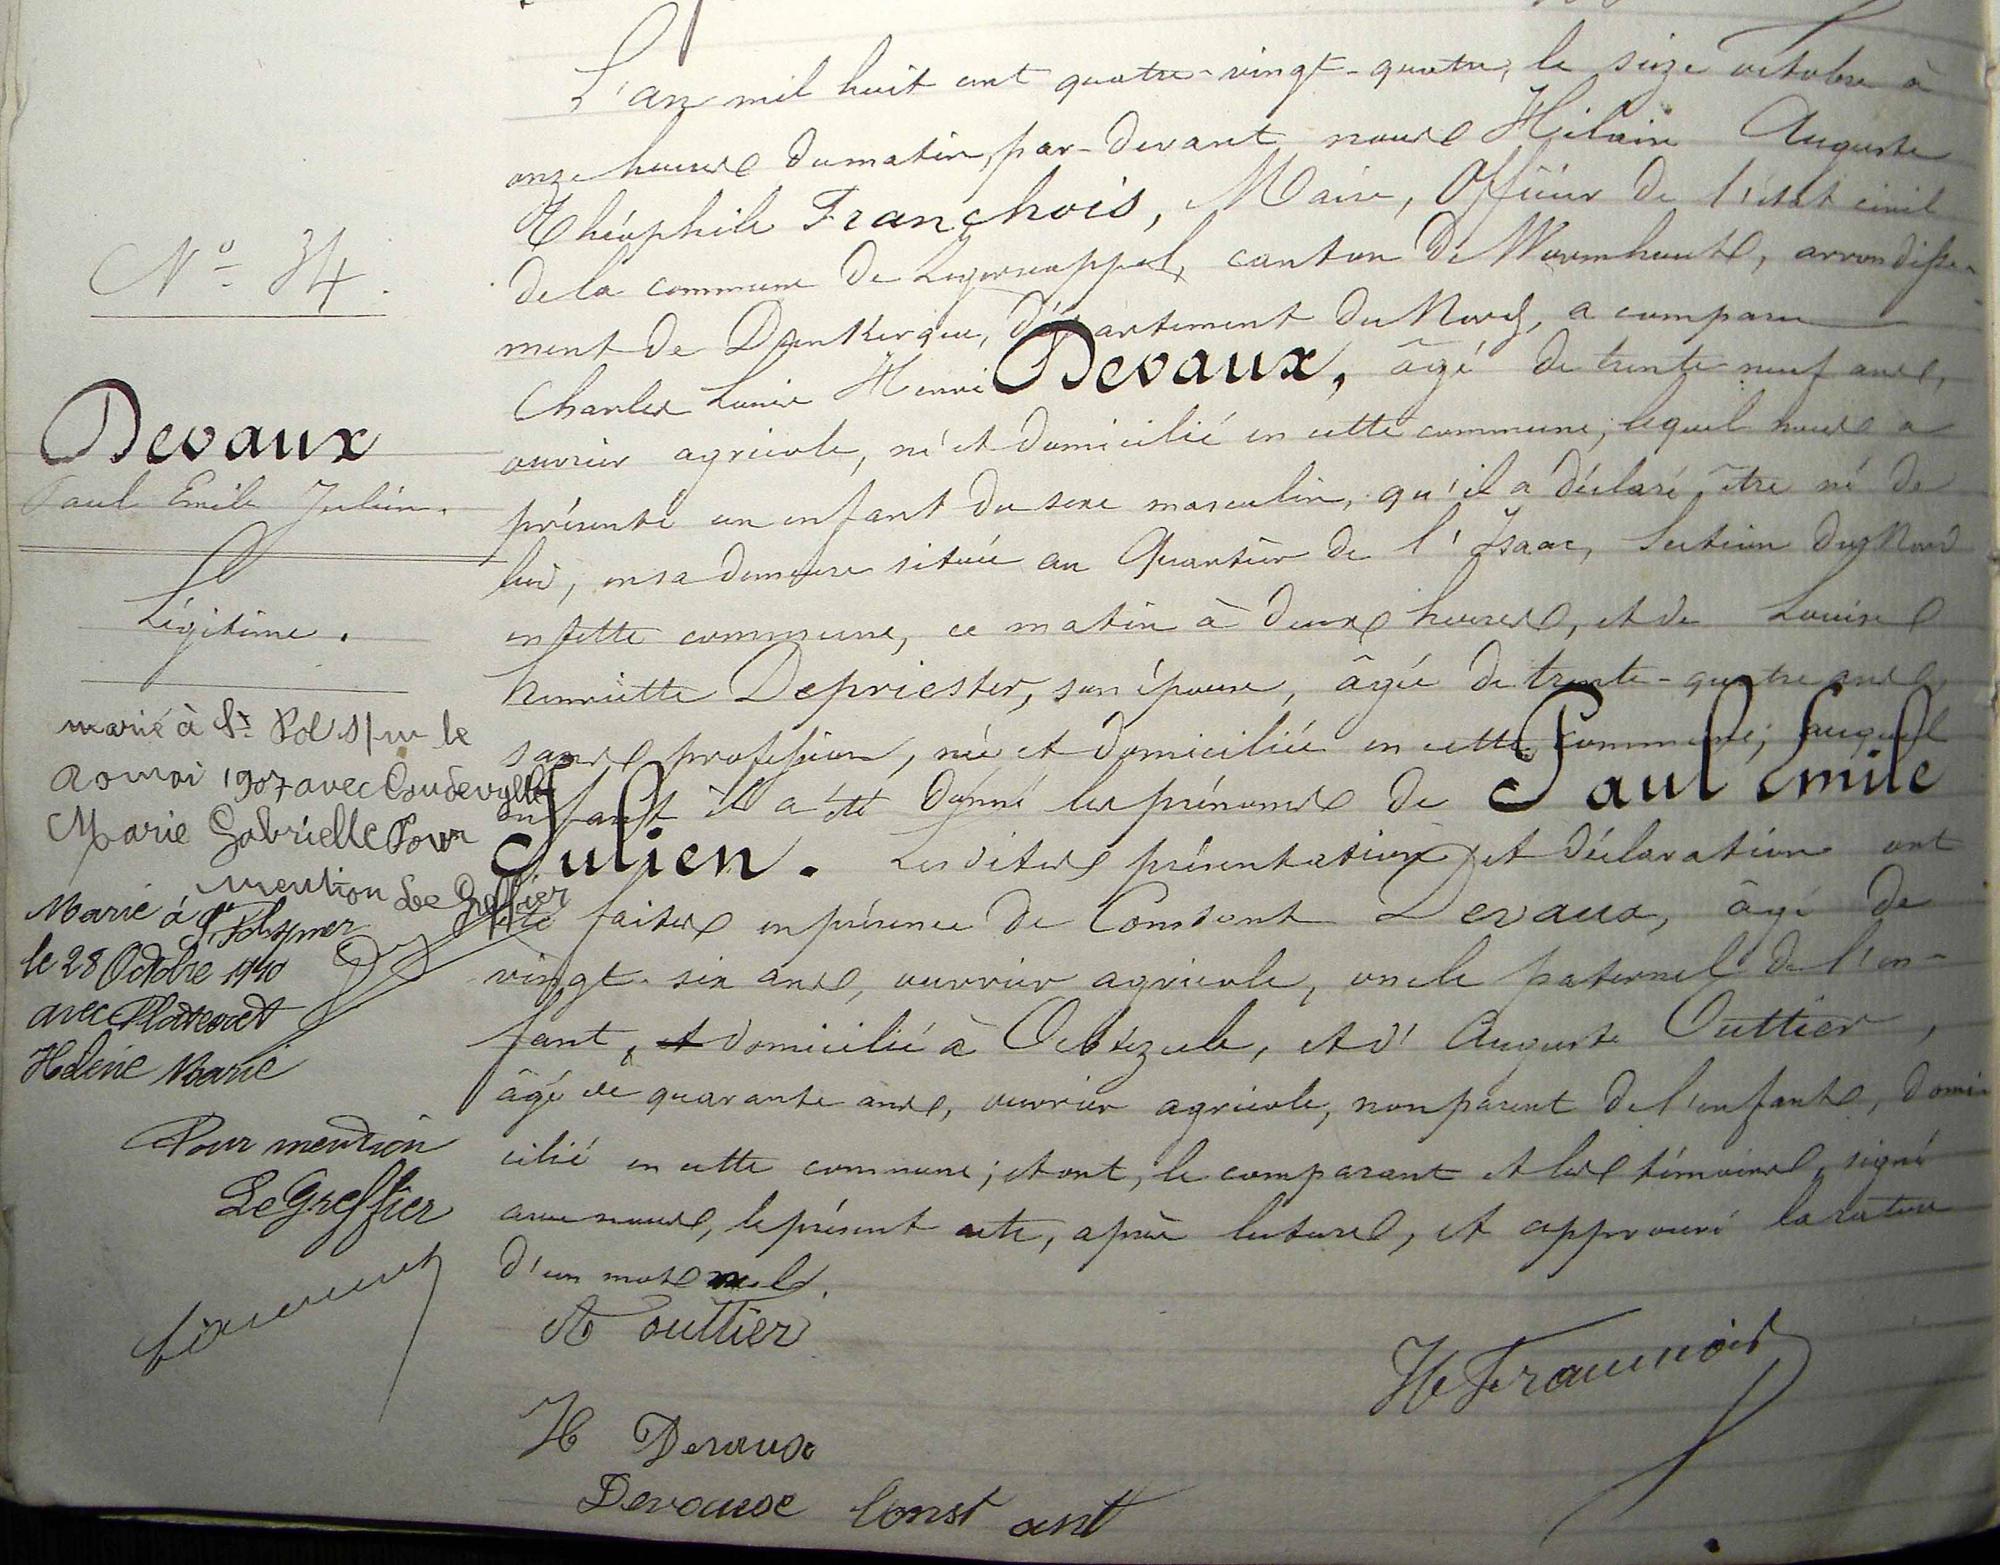 N° 34.
Devaux
Paul Emile Julien.
Légitime.
marié à St Pol s/m le
20 mai 1907 avec Coudevylle
Marie Gabrielle Pour
mention Le Greffier
Marié à St Pol s/mer
le 28 Octobre 1940
avec
Hélène Marie
Pour mention
Le Greffier
L'an mil huit cent quatre-vingt-quatre, le seize Octobre à
onze heures du matin, par-devant nous Hilaire Auguste
Théophile Franchois, Maire, Officier de l'état civil
de la commune de Lederzeele, canton de Wormhoudt, arrondisse-
ment de Dunkerque, département du Nord, a comparu
Charles Louis Henri Devaux, âgé de trente neuf ans,
ouvrier agricole, né et domicilié en cette commune, lequel nous a
présenté un enfant du sexe masculin, qu'il a déclaré être né de
lui, en sa demeure située au Quartier de l'Isaac, Section du Nord
en cette commune, ce matin à deux heures, et de Louise
henriette Depriester, son épouse, âgée de trente-quatre ans,
sans profession, née et domiciliée en cette commune; auquel
enfant il a été donné les prénoms de Paul Emile
Julien. Les dites présentation et déclaration ont
été faites en présence de Constant Devaux, âgé de
vingt-six ans, ouvrier agricole, oncle paternel de l'en-
fant, et domicilié à Ochtezeele, et d'Auguste Outtier,
âgé de quarante ans, ouvrier agricole, non parent de l'enfant, domi-
cilié en cette commune; et ont, le comparant et les témoins, signé
avec nous, le présent acte, après lecture, et approuvé la rature
d'un mot nul.
A outtier
H Franchois
H Devaux
Devaux Const ant